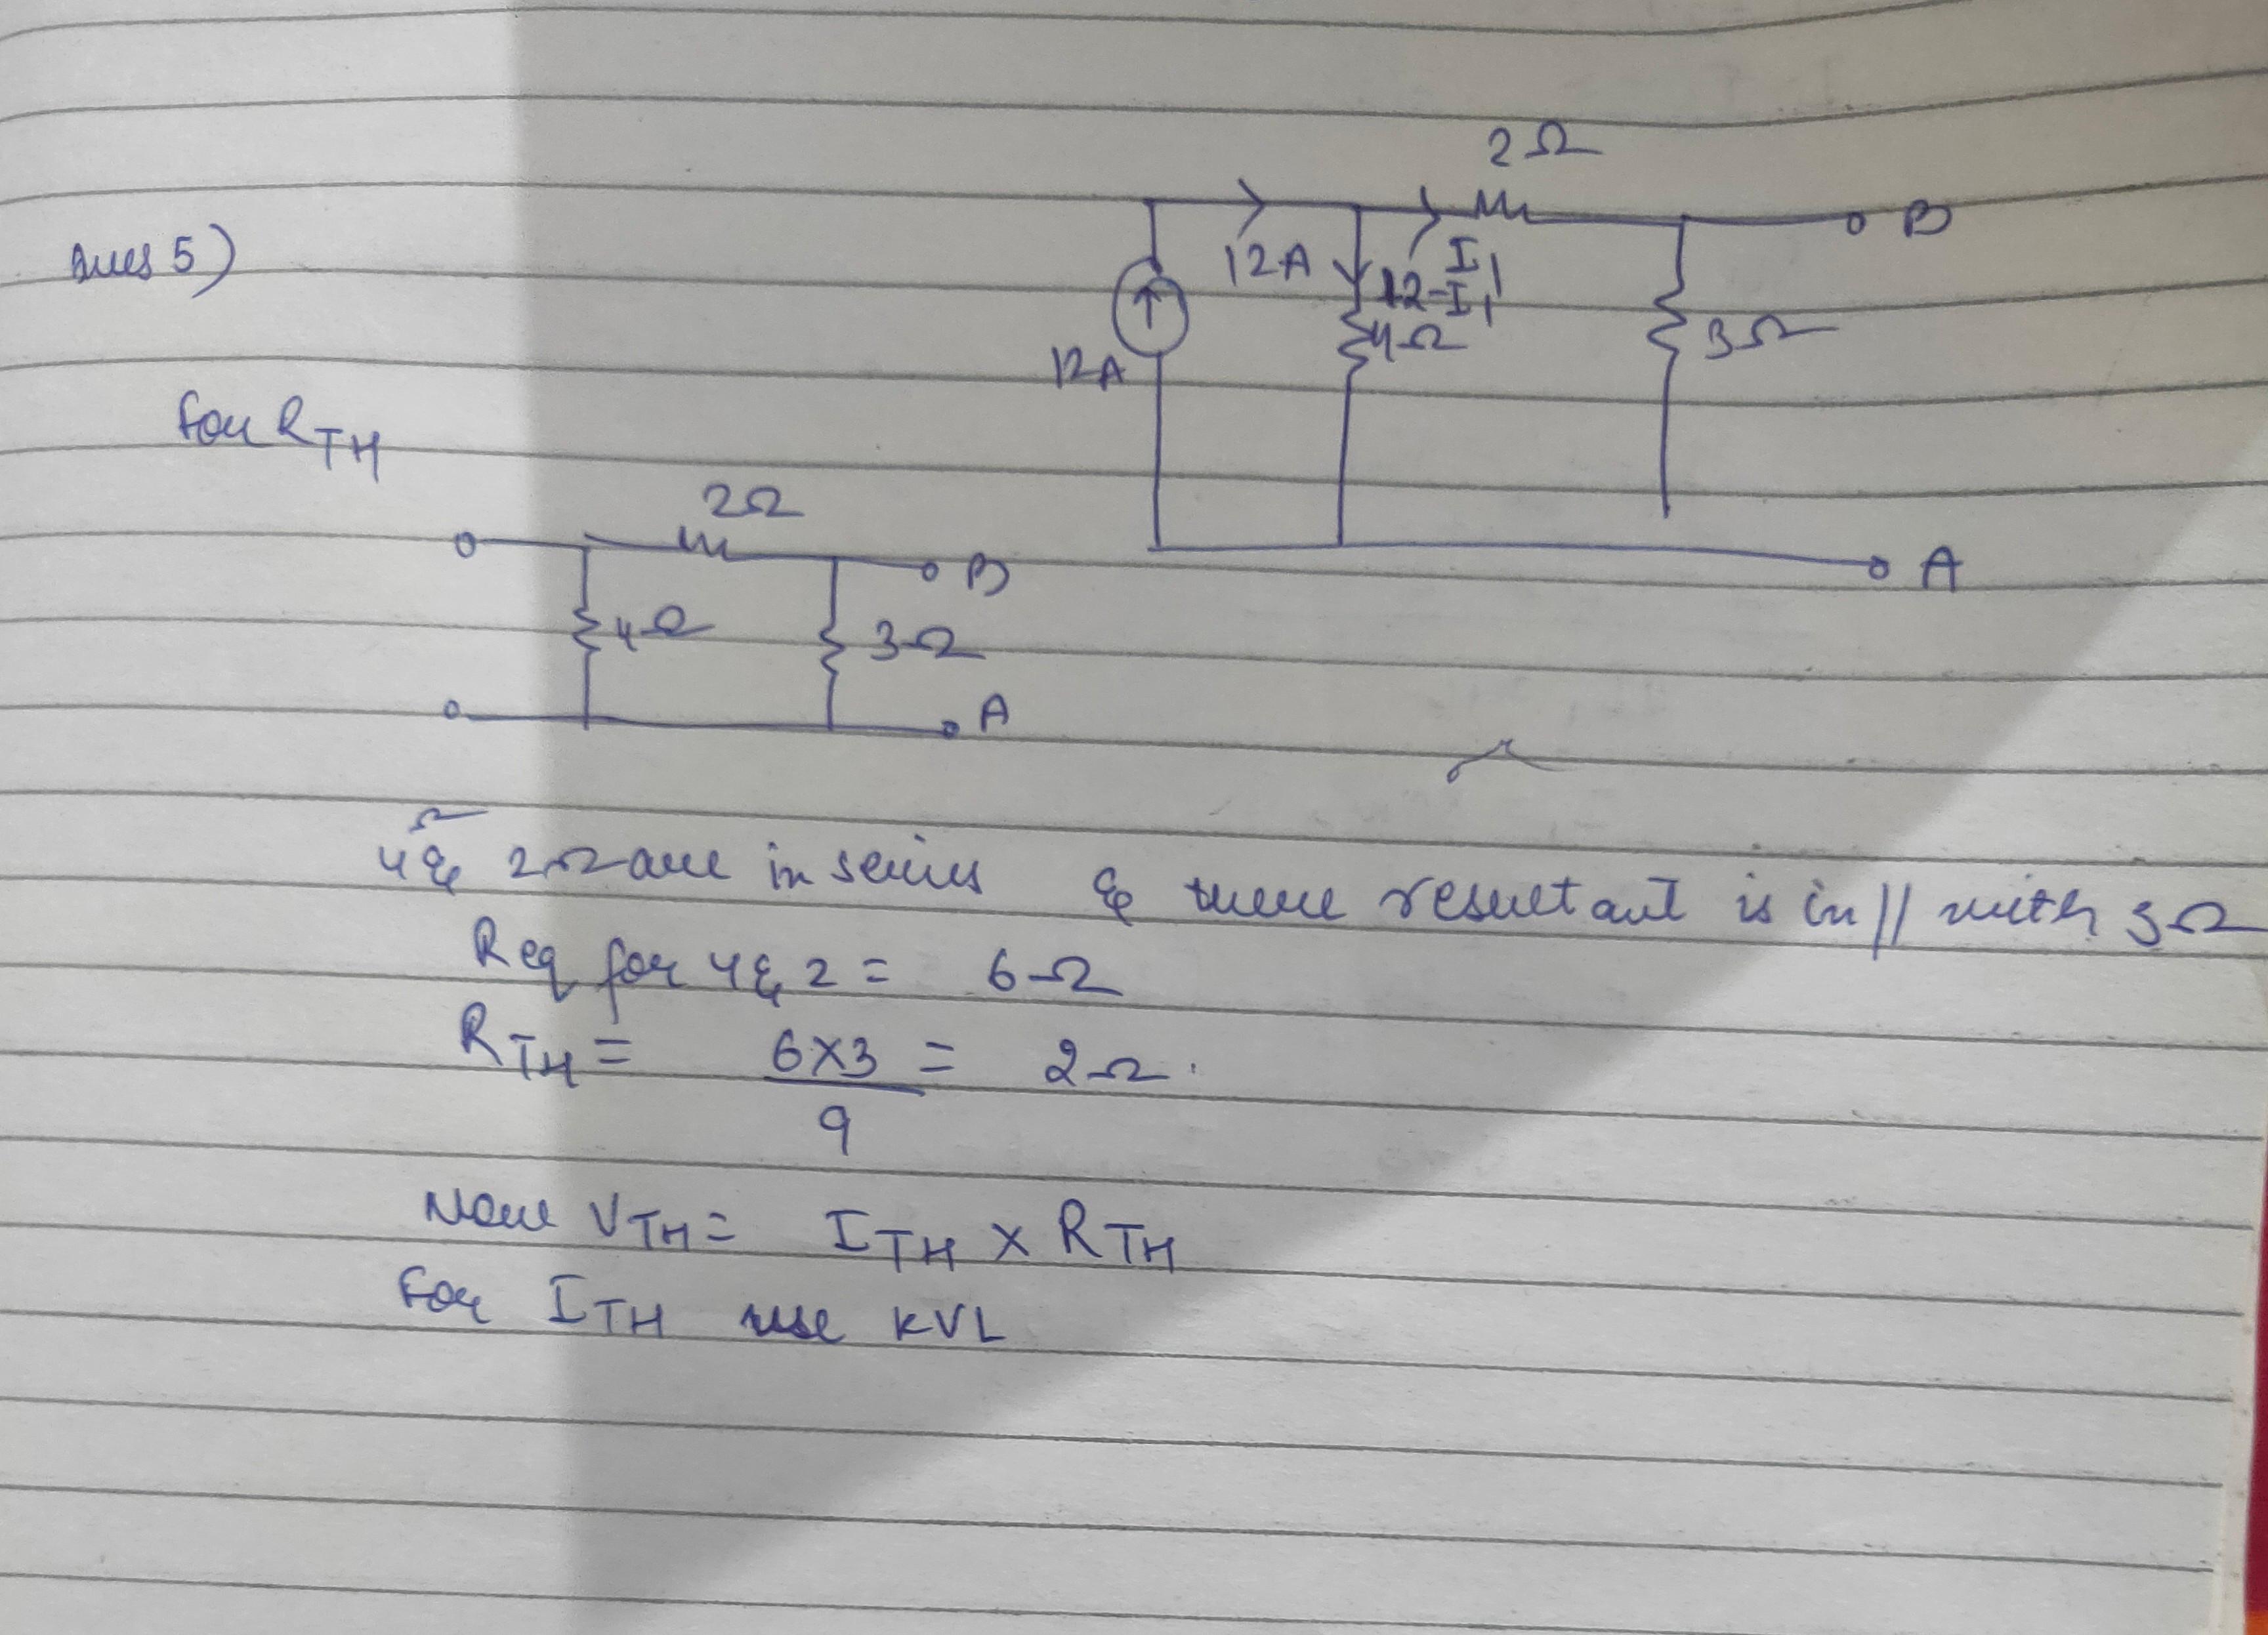 Ques 5)
2Ω
B
12A
I1
12-I1
4Ω
3Ω
12A
A
For RTH
2Ω
B
4Ω
3Ω
A
4Ω & 2Ω are in series & there resultant is in || with 3Ω
Req for 4 & 2 = 6Ω
RTH = 6×3 = 2Ω.
9
Now VTH = ITH × RTH
For ITH use KVL